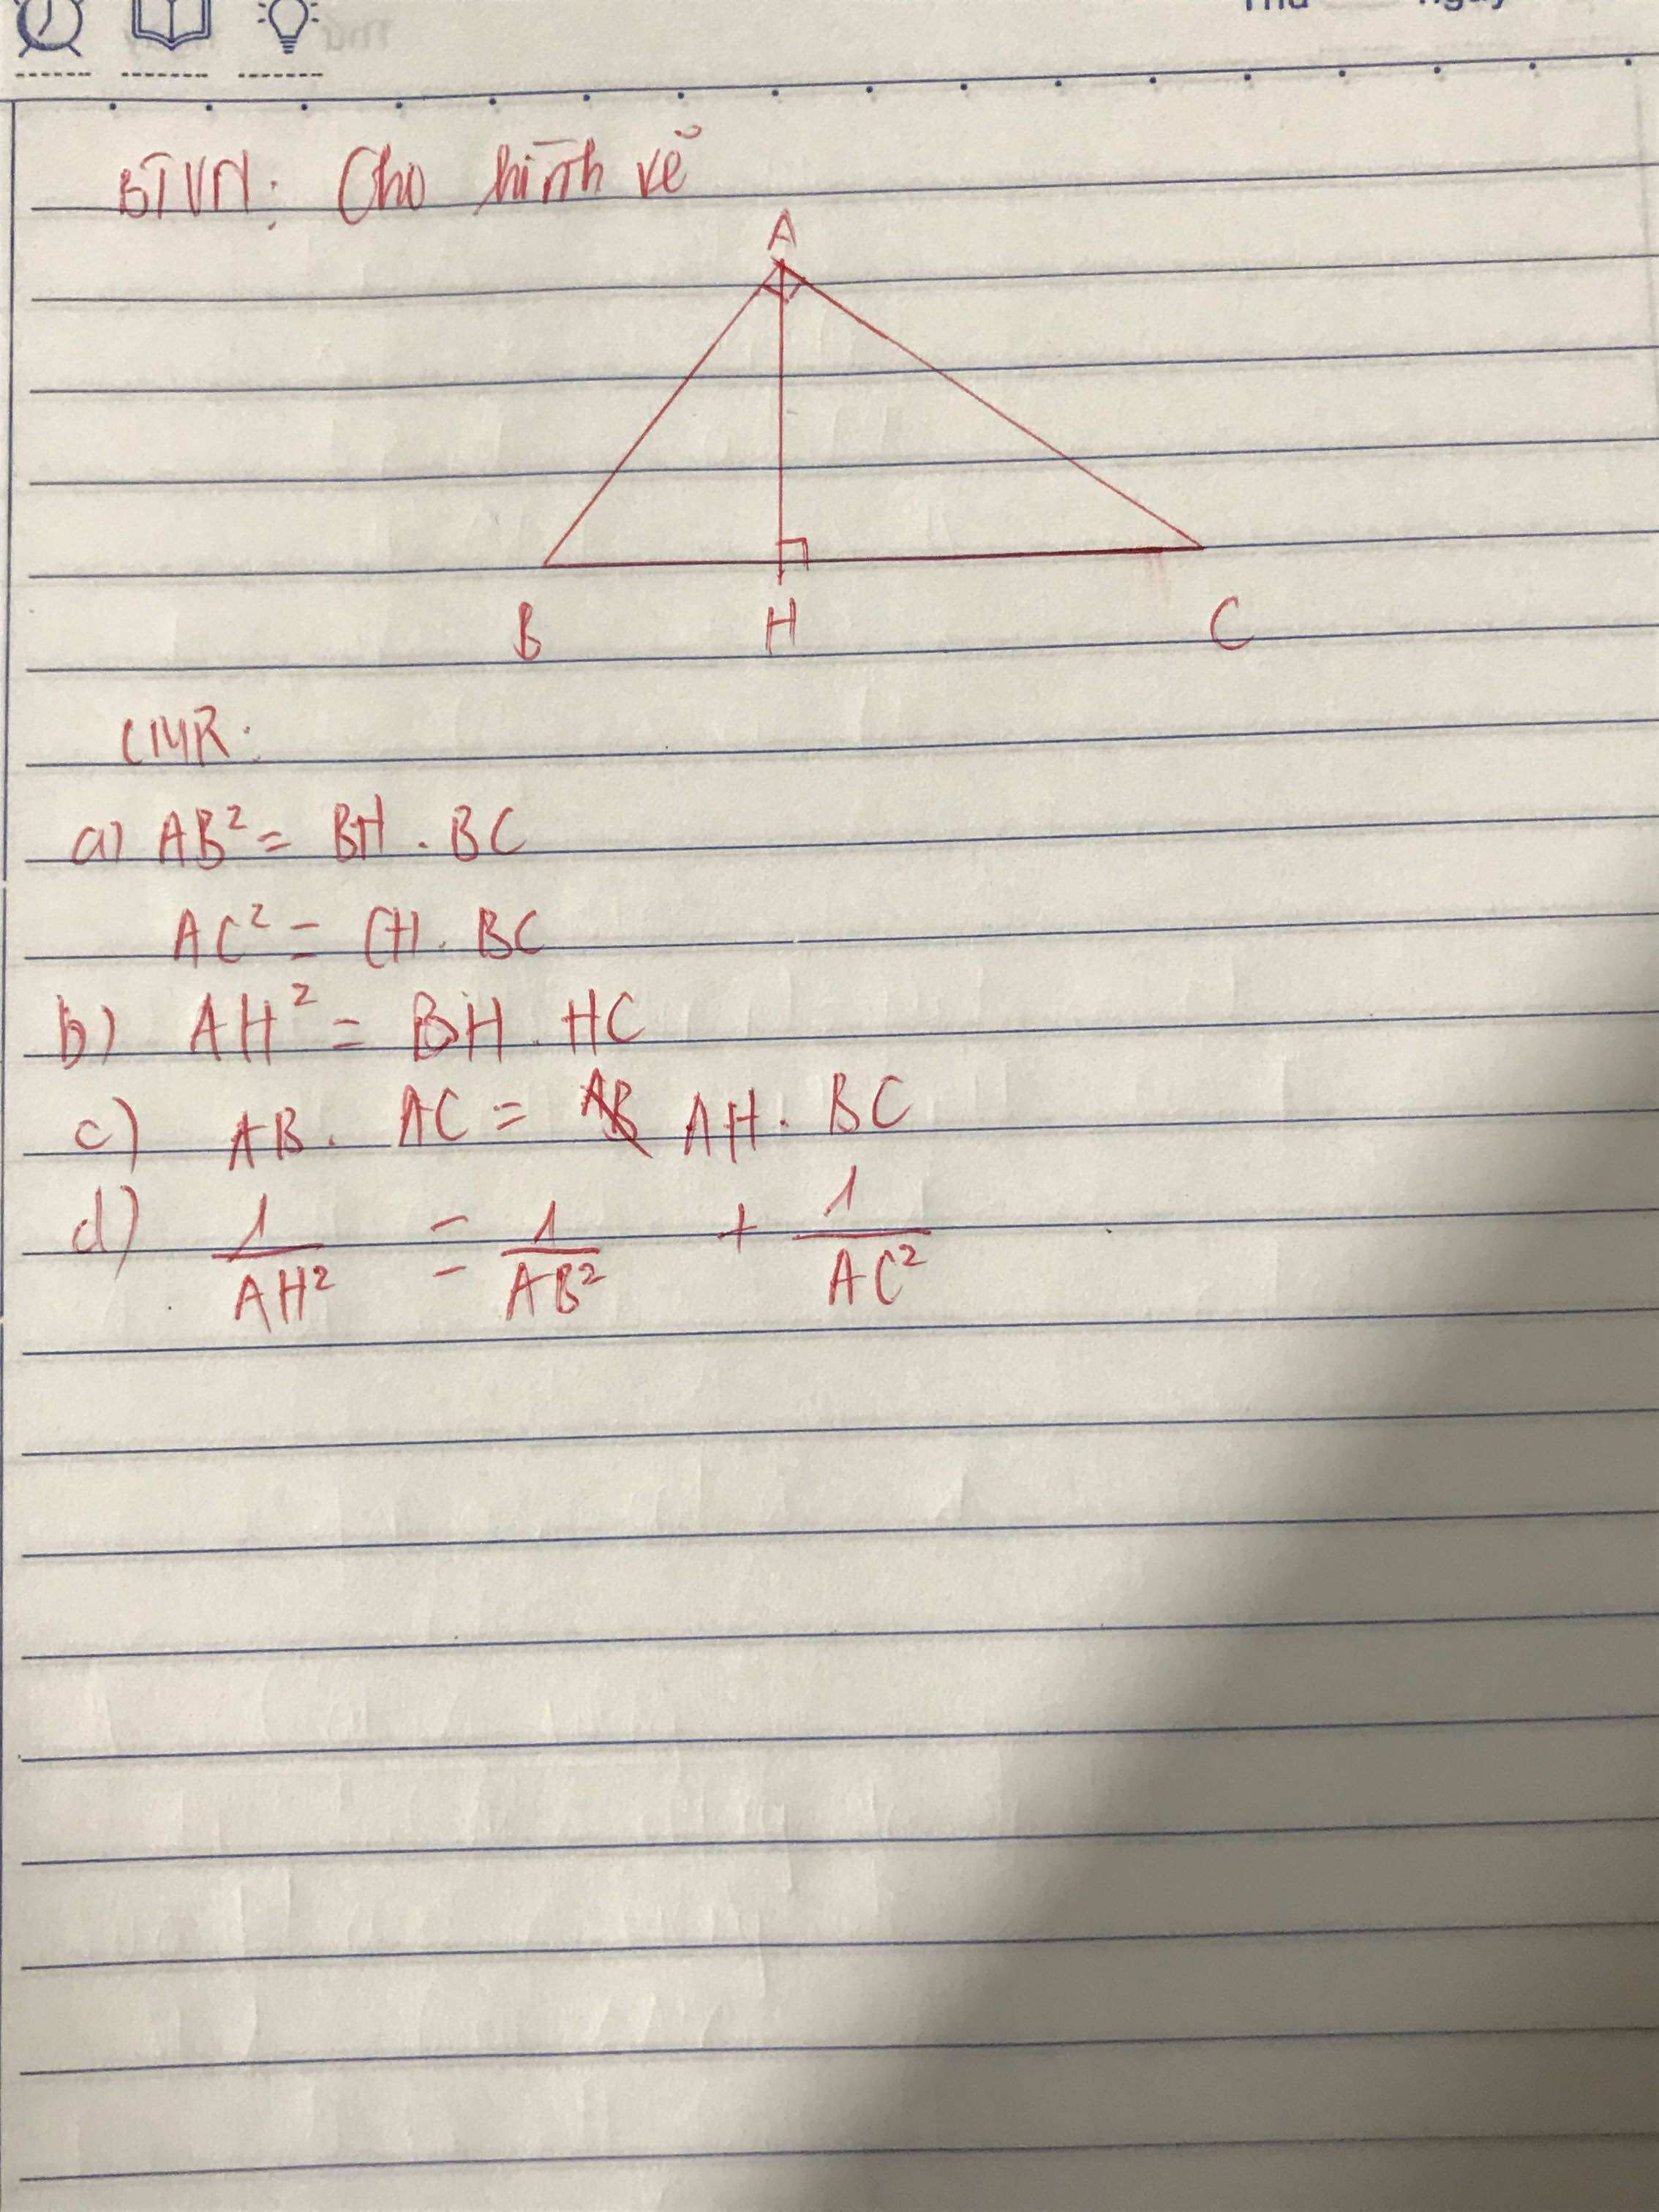 Thứ ngày
BTVN: Cho hình vẽ
A
B H C
CMR:
a) AB² = BH . BC
AC² = CH . BC
b) AH² = BH . HC
c) AB . AC = AH . BC
d) 1/AH² = 1/AB² + 1/AC²